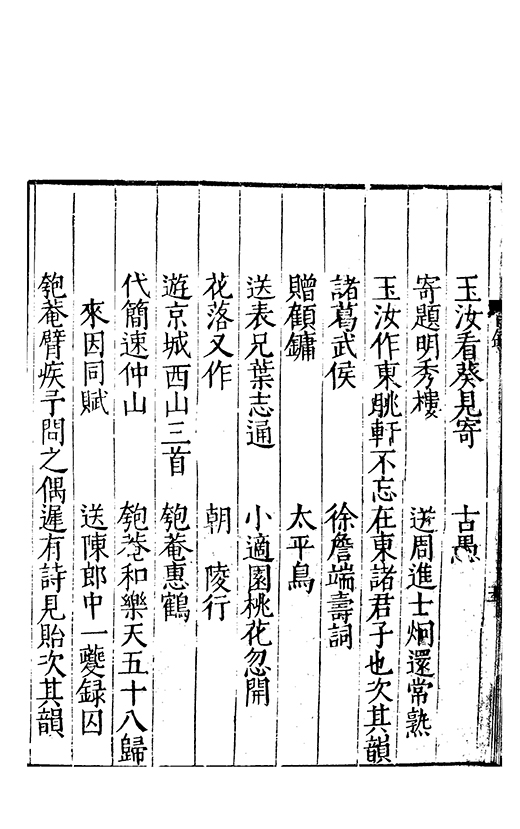 玉汝看葵見寄　古愚
寄題明秀樓　送周進士炯還常熟
玉汝作東眺軒不忘在東諸君子也次其韻
諸葛武侯　徐詹端壽詞
贈顧鏞　太平鳥
送表兄葉志通　小適園桃花忽開
花落又作　朝陵行
遊京城西山三首　匏菴惠鶴
代簡速仲山　匏菴和樂天五十八歸
來因同賦　送陳郎中一夔録囚
匏菴臂疾予問之偶遲有詩見貽次其韻